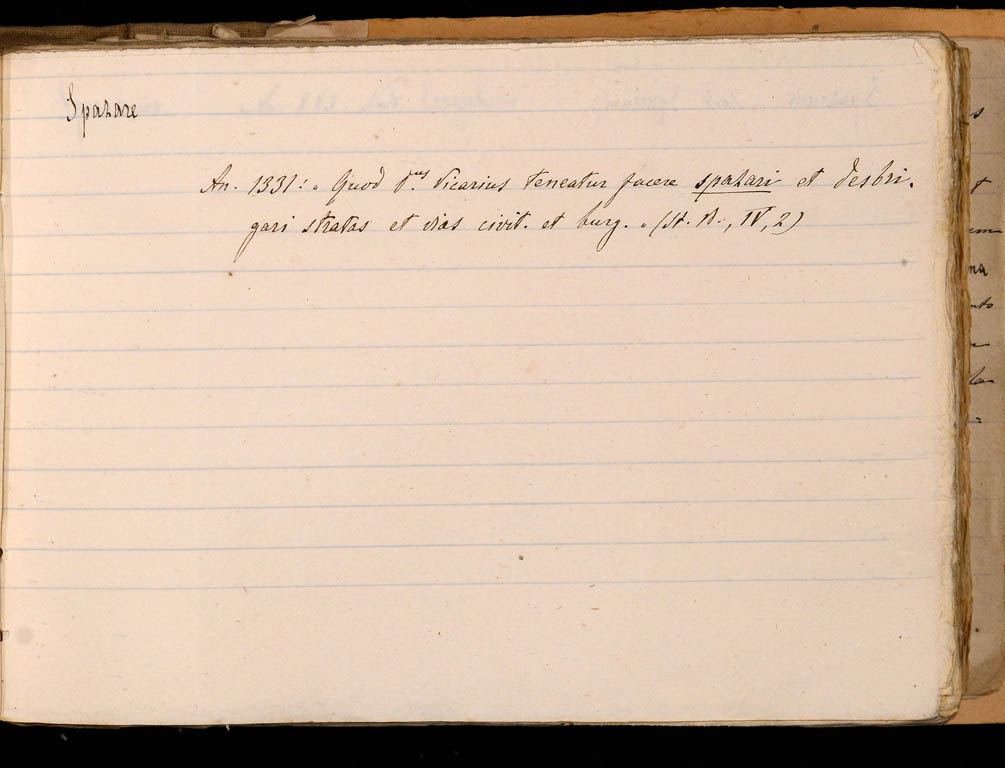 Spazare
An. 1331: „ Quod d.us Vicarius teneatur facere spazari et desbri-
gari stratas et vias civit. et burg. „ (St. B., IV, 2)